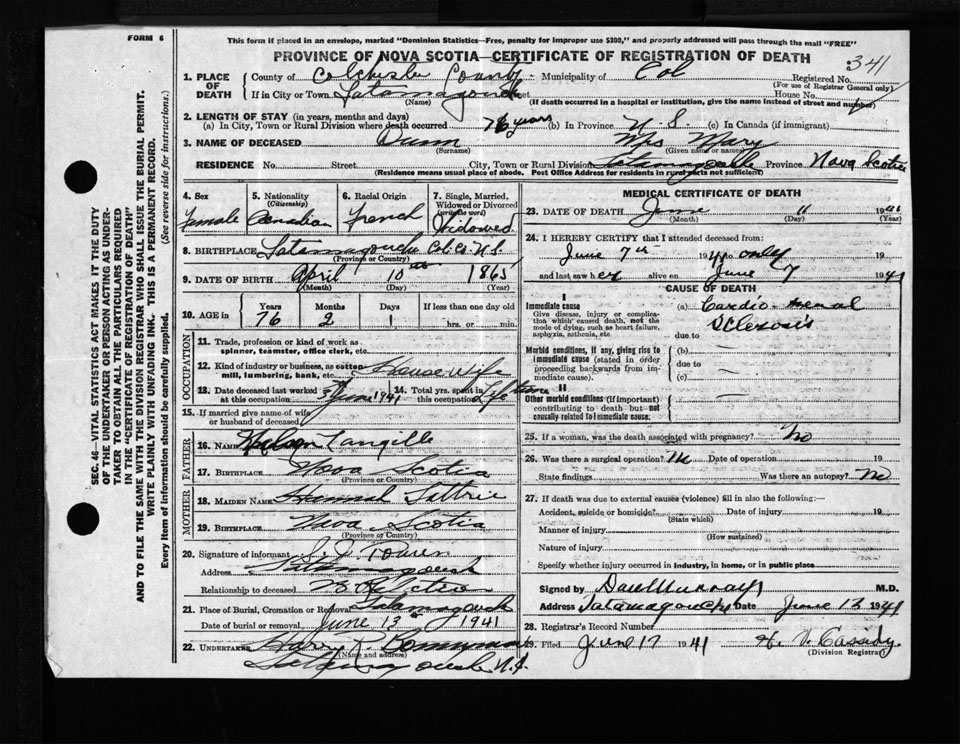 FORM 6
This form if placed in an envelope, marked "Dominion Statistics—Free, penalty for improper use $300," and properly addressed will pass through the mail "FREE"
PROVINCE OF NOVA SCOTIA—CERTIFICATE OF REGISTRATION OF DEATH
341
SEC. 46—VITAL STATISTICS ACT MAKES IT THE DUTY OF THE UNDERTAKER OR PERSON ACTING AS UNDERTAKER TO OBTAIN ALL THE PARTICULARS REQUIRED IN THE "CERTIFICATE OF REGISTRATION OF DEATH" AND TO FILE THE SAME WITH THE DIVISION REGISTRAR WHO SHALL ISSUE THE BURIAL PERMIT.
WRITE PLAINLY WITH UNFADING INK. THIS IS A PERMANENT RECORD.
Every item of information should be carefully supplied. (See reverse side for instructions.)
1. PLACE OF DEATH
County of Colchester County Municipality of Col Registered No.
(For use of Registrar General only)
If in City or Town Tatamagouche Street House No.
(Name) (If death occurred in a hospital or institution, give the name instead of street and number)
2. LENGTH OF STAY (in years, months and days)
(a) In City, Town or Rural Division where death occurred 76 years (b) In Province N.S. (c) In Canada (if immigrant)
3. NAME OF DECEASED Mrs Mary
(Surname) (Given name or names)
RESIDENCE No. Street City, Town or Rural Division Tatamagouche Province Nova Scotia
(Residence means usual place of abode. Post Office Address for residents in rural parts not sufficient)
4. Sex Female
5. Nationality (Citizenship) Canadian
6. Racial Origin French
7. Single, Married, Widowed or Divorced (write the word) Widowed
8. BIRTHPLACE Tatamagouche Col. Co. N.S.
(Province or Country)
9. DATE OF BIRTH April 10th 1865
(Month) (Day) (Year)
10. AGE in Years 76 Months 2 Days 1 If less than one day old hrs. or min.
OCCUPATION
11. Trade, profession or kind of work as spinner, teamster, office clerk, etc.
12. Kind of industry or business, as cotton mill, lumbering, bank, etc. Housewife
13. Date deceased last worked at this occupation June 1941
14. Total yrs. spent in this occupation Life time
15. If married give name of wife or husband of deceased
FATHER
16. NAME Langille
17. BIRTHPLACE Nova Scotia
(Province or Country)
MOTHER
18. MAIDEN NAME Hannah Tattrie
19. BIRTHPLACE Nova Scotia
(Province or Country)
20. Signature of informant
Address Tatamagouche
Relationship to deceased
21. Place of Burial, Cremation or Removal Tatamagouche
Date of burial or removal June 13th 1941
22. UNDERTAKER
(Name and address)
Tatamagouche N.S.
MEDICAL CERTIFICATE OF DEATH
23. DATE OF DEATH June 11 1941
(Month) (Day) (Year)
24. I HEREBY CERTIFY that I attended deceased from:
June 7th 194 to only 19
and last saw her alive on June 7 1941
CAUSE OF DEATH
I
Immediate cause
Give disease, injury or complication which caused death, not the mode of dying, such as heart failure, asphyxia, asthenia, etc
(a) Cardio-renal Sclerosis
due to
Morbid conditions, if any, giving rise to immediate cause (stated in order proceeding backwards from immediate cause).
(b)
due to
(c)
II
Other morbid conditions (if important) contributing to death but not causally related to immediate cause.
25. If a woman, was the death associated with pregnancy? No
26. Was there a surgical operation? No Date of operation 19
State findings Was there an autopsy? No
27. If death was due to external causes (violence) fill in also the following:—
Accident, suicide or homicide? Date of injury 19
(State which)
Manner of injury
(How sustained)
Nature of injury
Specify whether injury occurred in industry, in home, or in public place
Signed by Dan Murray M.D.
Address Tatamagouche Date June 13 1941
28. Registrar's Record Number
29. Filed June 17 1941 Cassidy
(Division Registrar)